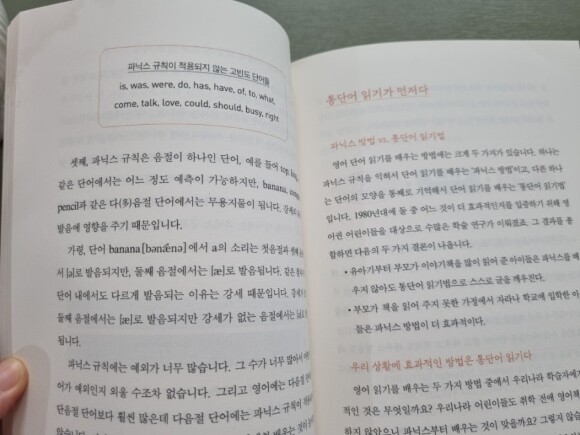 파닉스 규칙이 적용되지 않는 고빈도 단어들
is, was, were, do, has, have, of, to, what,
come, talk, love, could, should, busy, right
셋째, 파닉스 규칙은 음절이 하나인 단어, 예를 들어 top
같은 단어에서는 어느 정도 예측이 가능하지만, banana,
pencil과 같은 다(多)음절 단어에서는 무용지물이 됩니다. 강세가
발음에 영향을 주기 때문입니다.
가령, 단어 banana[bənǽnə]에서 a의 소리는 첫음절과 셋째
서 [ə]로 발음되지만, 둘째 음절에서는 [æ]로 발음됩니다. 같은
단어 내에서도 다르게 발음되는 이유는 강세 때문입니다.
둘째 음절에서는 [æ]로 발음되지만 강세가 없는 음절에서는
됩니다.
파닉스 규칙에는 예외가 너무 많습니다. 그 수가 너무 많아서
어가 예외인지 외울 수조차 없습니다. 그리고 영어에는 다음절
단음절 단어보다 훨씬 많은데 다음절 단어에는 파닉스 규칙이
통단어 읽기가 먼저다
파닉스 방법 vs. 통단어 읽기법
영어 단어 읽기를 배우는 방법에는 크게 두 가지가 있습니다. 하나는
파닉스 규칙을 익혀서 단어 읽기를 배우는 '파닉스 방법'이고, 다른 하나
는 단어의 모양을 통째로 기억해서 단어 읽기를 배우는 '통단어 읽기법'
입니다. 1980년대에 둘 중 어느 것이 더 효과적인지를 입증하기 위해 영
어권 어린이들을 대상으로 수많은 학술 연구가 이뤄졌죠. 그 결과를 종
합하면 다음의 두 가지 결론이 나옵니다.
• 유아기부터 부모가 이야기책을 많이 읽어 준 아이들은 파닉스를 배
우지 않아도 통단어 읽기법으로 스스로 글을 깨우친다.
• 부모가 책을 읽어 주지 못한 가정에서 자라나 학교에 입학한 아이
들은 파닉스 방법이 더 효과적이다.
우리 상황에 효과적인 방법은 통단어 읽기다
영어 읽기를 배우는 두 가지 방법 중에서 우리나라 학습자에게
적인 것은 무엇일까요? 우리나라 어린이들도 취학 전에 영어책을
하지 않았으니 파닉스부터 배우는 것이 맞을까요? 그렇지